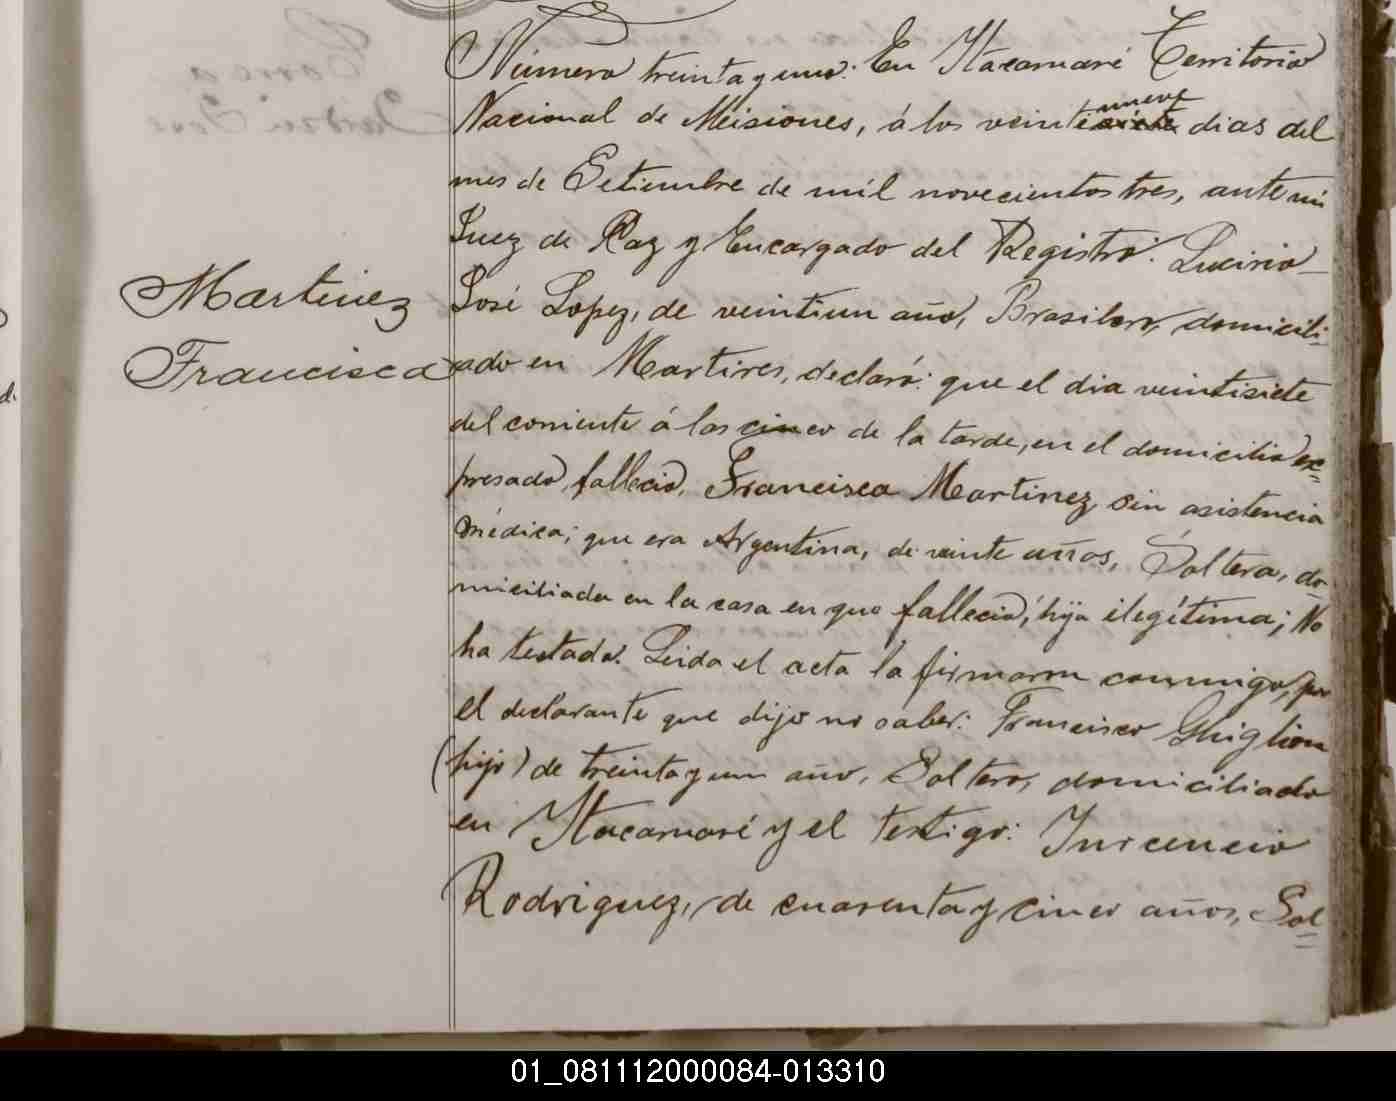 Número treinta y uno. En Itacaruaré Territorio
Nacional de Misiones, á los veintinueve dias del
mes de Setiembre de mil novecientos tres, ante mi
Juez de Paz y Encargado del Registro: Lucirio
José Lopez, de veintiun año, Brasilero, domicili-
Martinez
Francisca
ado en Martires, declaró: que el dia veintisiete
del corriente á las cinco de la tarde, en el domicilio ex-
presado, falleció, Francisca Martinez, sin asistencia
médica; que era Argentina, de veinte años, Soltera, do-
miciliada en la casa en que falleció, hija ilegítima; No
ha testado. Leida el acta la firmaron conmigo, por
el declarante que dijo no saber: Francisco Ghiglion
(hijo) de treinta y un año, Soltero, domiciliado
en Itacaruaré y el testigo: Inocencio
Rodriguez, de cuarenta y cinco años, Sol-
01_081112000084-013310